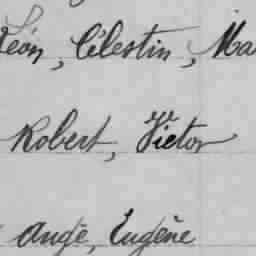 Léon, Célestin, Ma
Robert, Victor
Ange, Eugène